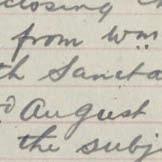 closing
from Wm
Sancta
August
the subj